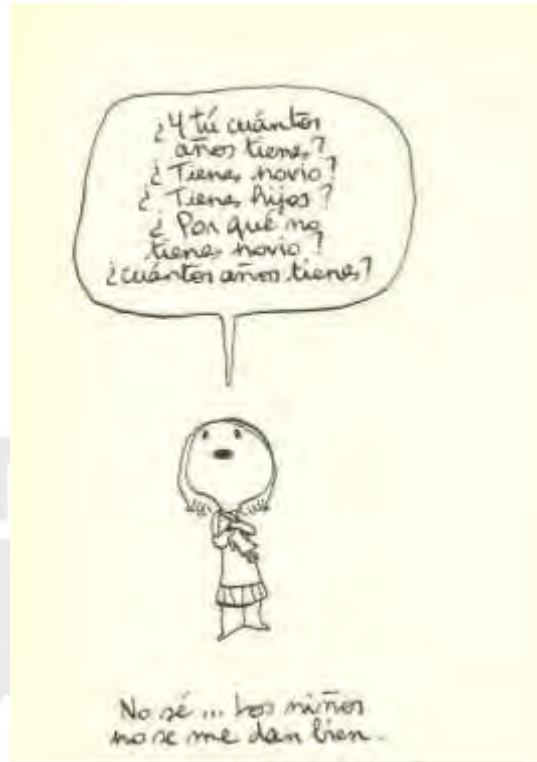 ¿Y tú cuántos
años tienes?
¿Tienes novio?
¿Tienes hijos?
¿Por qué no
tienes novio?
¿cuántos años tienes?
No sé... Los niños
no se me dan bien.